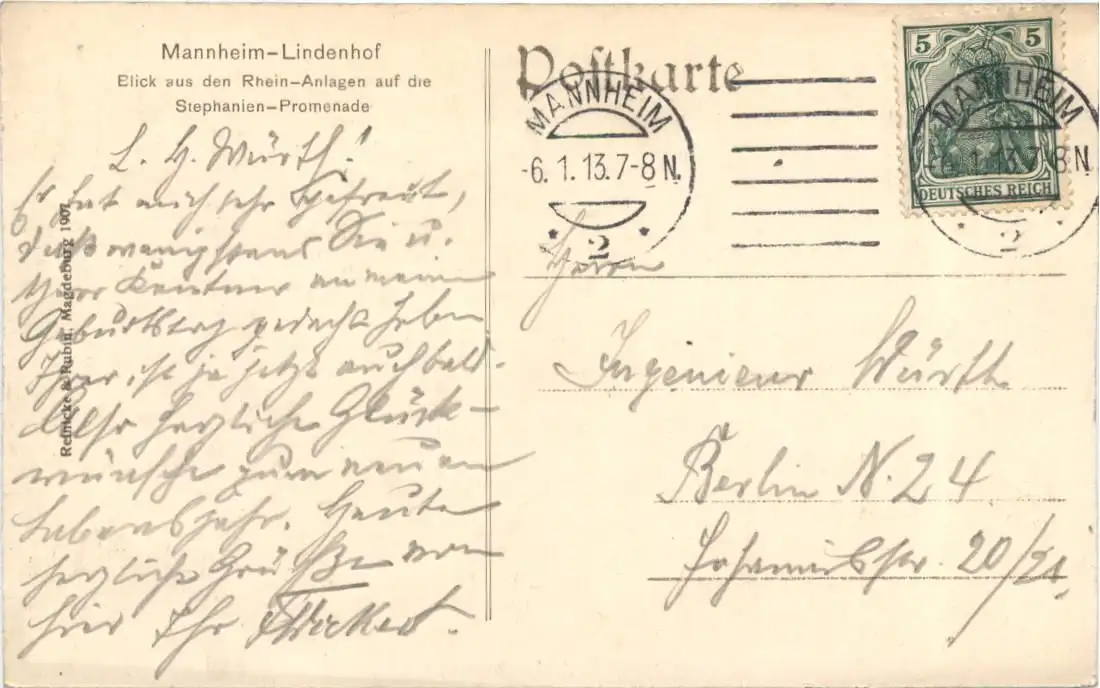 Mannheim-Lindenhof
Blick aus den Rhein-Anlagen auf die
Stephanien-Promenade
L. H. Würth!
Es hat mich sehr gefreut,
daß wenigstens Sie u.
Herr Kentner an meinen
Geburtstag gedacht haben
Ihrer ist ja jetzt auch bald.
Also herzliche Glück-
wünsche zum neuen
Lebensjahr. Heute
herzliche Grüße von
hier Ihr
Reinicke & Rubin, Magdeburg 1907
Postkarte
MANNHEIM
-6.1.13.7-8N.
* 2 *
5 5
DEUTSCHES REICH
MANNHEIM
-6.1.13.7-8N.
2
Herrn
Ingenieur Würth
Berlin N. 24
Johannisstr. 20/21